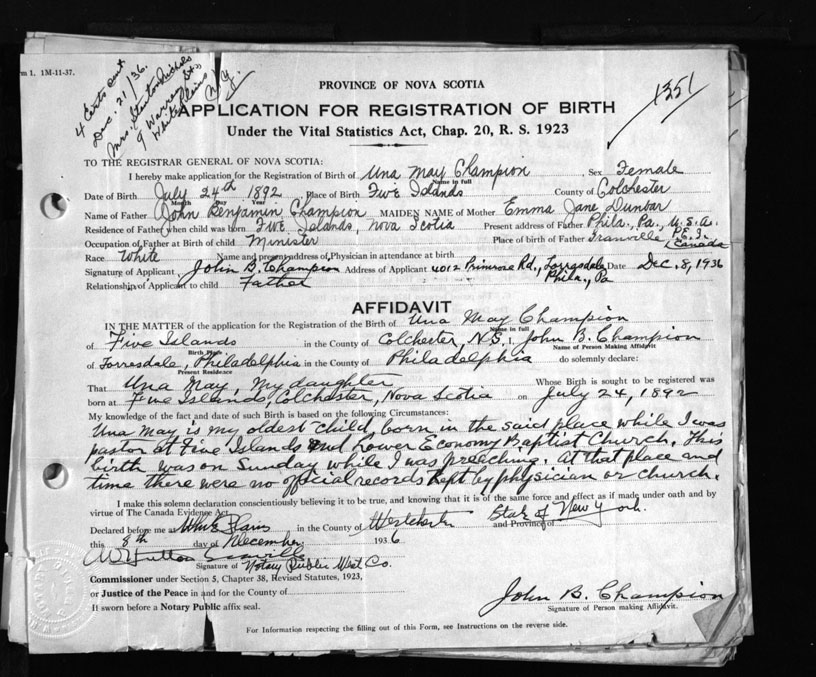 m 1. 1M-11-37.
4 Certs sent
Dec. 21/36.
Mrs. Stanton Nichols
9 Warren St.,
White Plains
N.Y.
1351
PROVINCE OF NOVA SCOTIA
APPLICATION FOR REGISTRATION OF BIRTH
Under the Vital Statistics Act, Chap. 20, R. S. 1923
TO THE REGISTRAR GENERAL OF NOVA SCOTIA:
I hereby make application for the Registration of Birth of Una May Champion Sex Female
Name in full
Date of Birth July 24th 1892 Place of Birth Five Islands County of Colchester
Month Day Year
Name of Father John Benjamin Champion MAIDEN NAME of Mother Emma Jane Dunbar
Residence of Father when child was born Five Islands, Nova Scotia Present address of Father Phila., Pa., U.S.A.
Occupation of Father at Birth of child Minister Place of birth of Father P.E.I. Canada
Race White Name and present address of Physician in attendance at birth
Signature of Applicant John B. Champion Address of Applicant 4012 Primrose Rd., Torresdale Phila., Pa Date Dec. 8, 1936
Relationship of Applicant to child Father
AFFIDAVIT
IN THE MATTER of the application for the Registration of the Birth of Una May Champion
Name in full
of Five Islands in the County of Colchester, N.S. I, John B. Champion
Birth Place Name of Person Making Affidavit
of Torresdale, Philadelphia in the County of Philadelphia do solemnly declare:
Present Residence
That Una May, My daughter Whose Birth is sought to be registered was
born at Five Islands, Colchester, Nova Scotia on July 24, 1892
My knowledge of the fact and date of such Birth is based on the following Circumstances:
Una May is my oldest child, born in the said place while I was
pastor at Five Islands and Lower Economy Baptist Church. This
birth was on Sunday while I was preaching. At that place and
time there were no official records kept by physician or church.
I make this solemn declaration conscientiously believing it to be true, and knowing that it is of the same force and effect as if made under oath and by
virtue of The Canada Evidence Act.
Declared before me at White Plains in the County of Westchester and Province of State of New York.
this 8th day of December 1936
Signature of Notary Public West Co.
Commissioner under Section 5, Chapter 38, Revised Statutes, 1923,
or Justice of the Peace in and for the County of
If sworn before a Notary Public affix seal.
John B. Champion
Signature of Person making Affidavit.
For Information respecting the filling out of this Form, see Instructions on the reverse side.